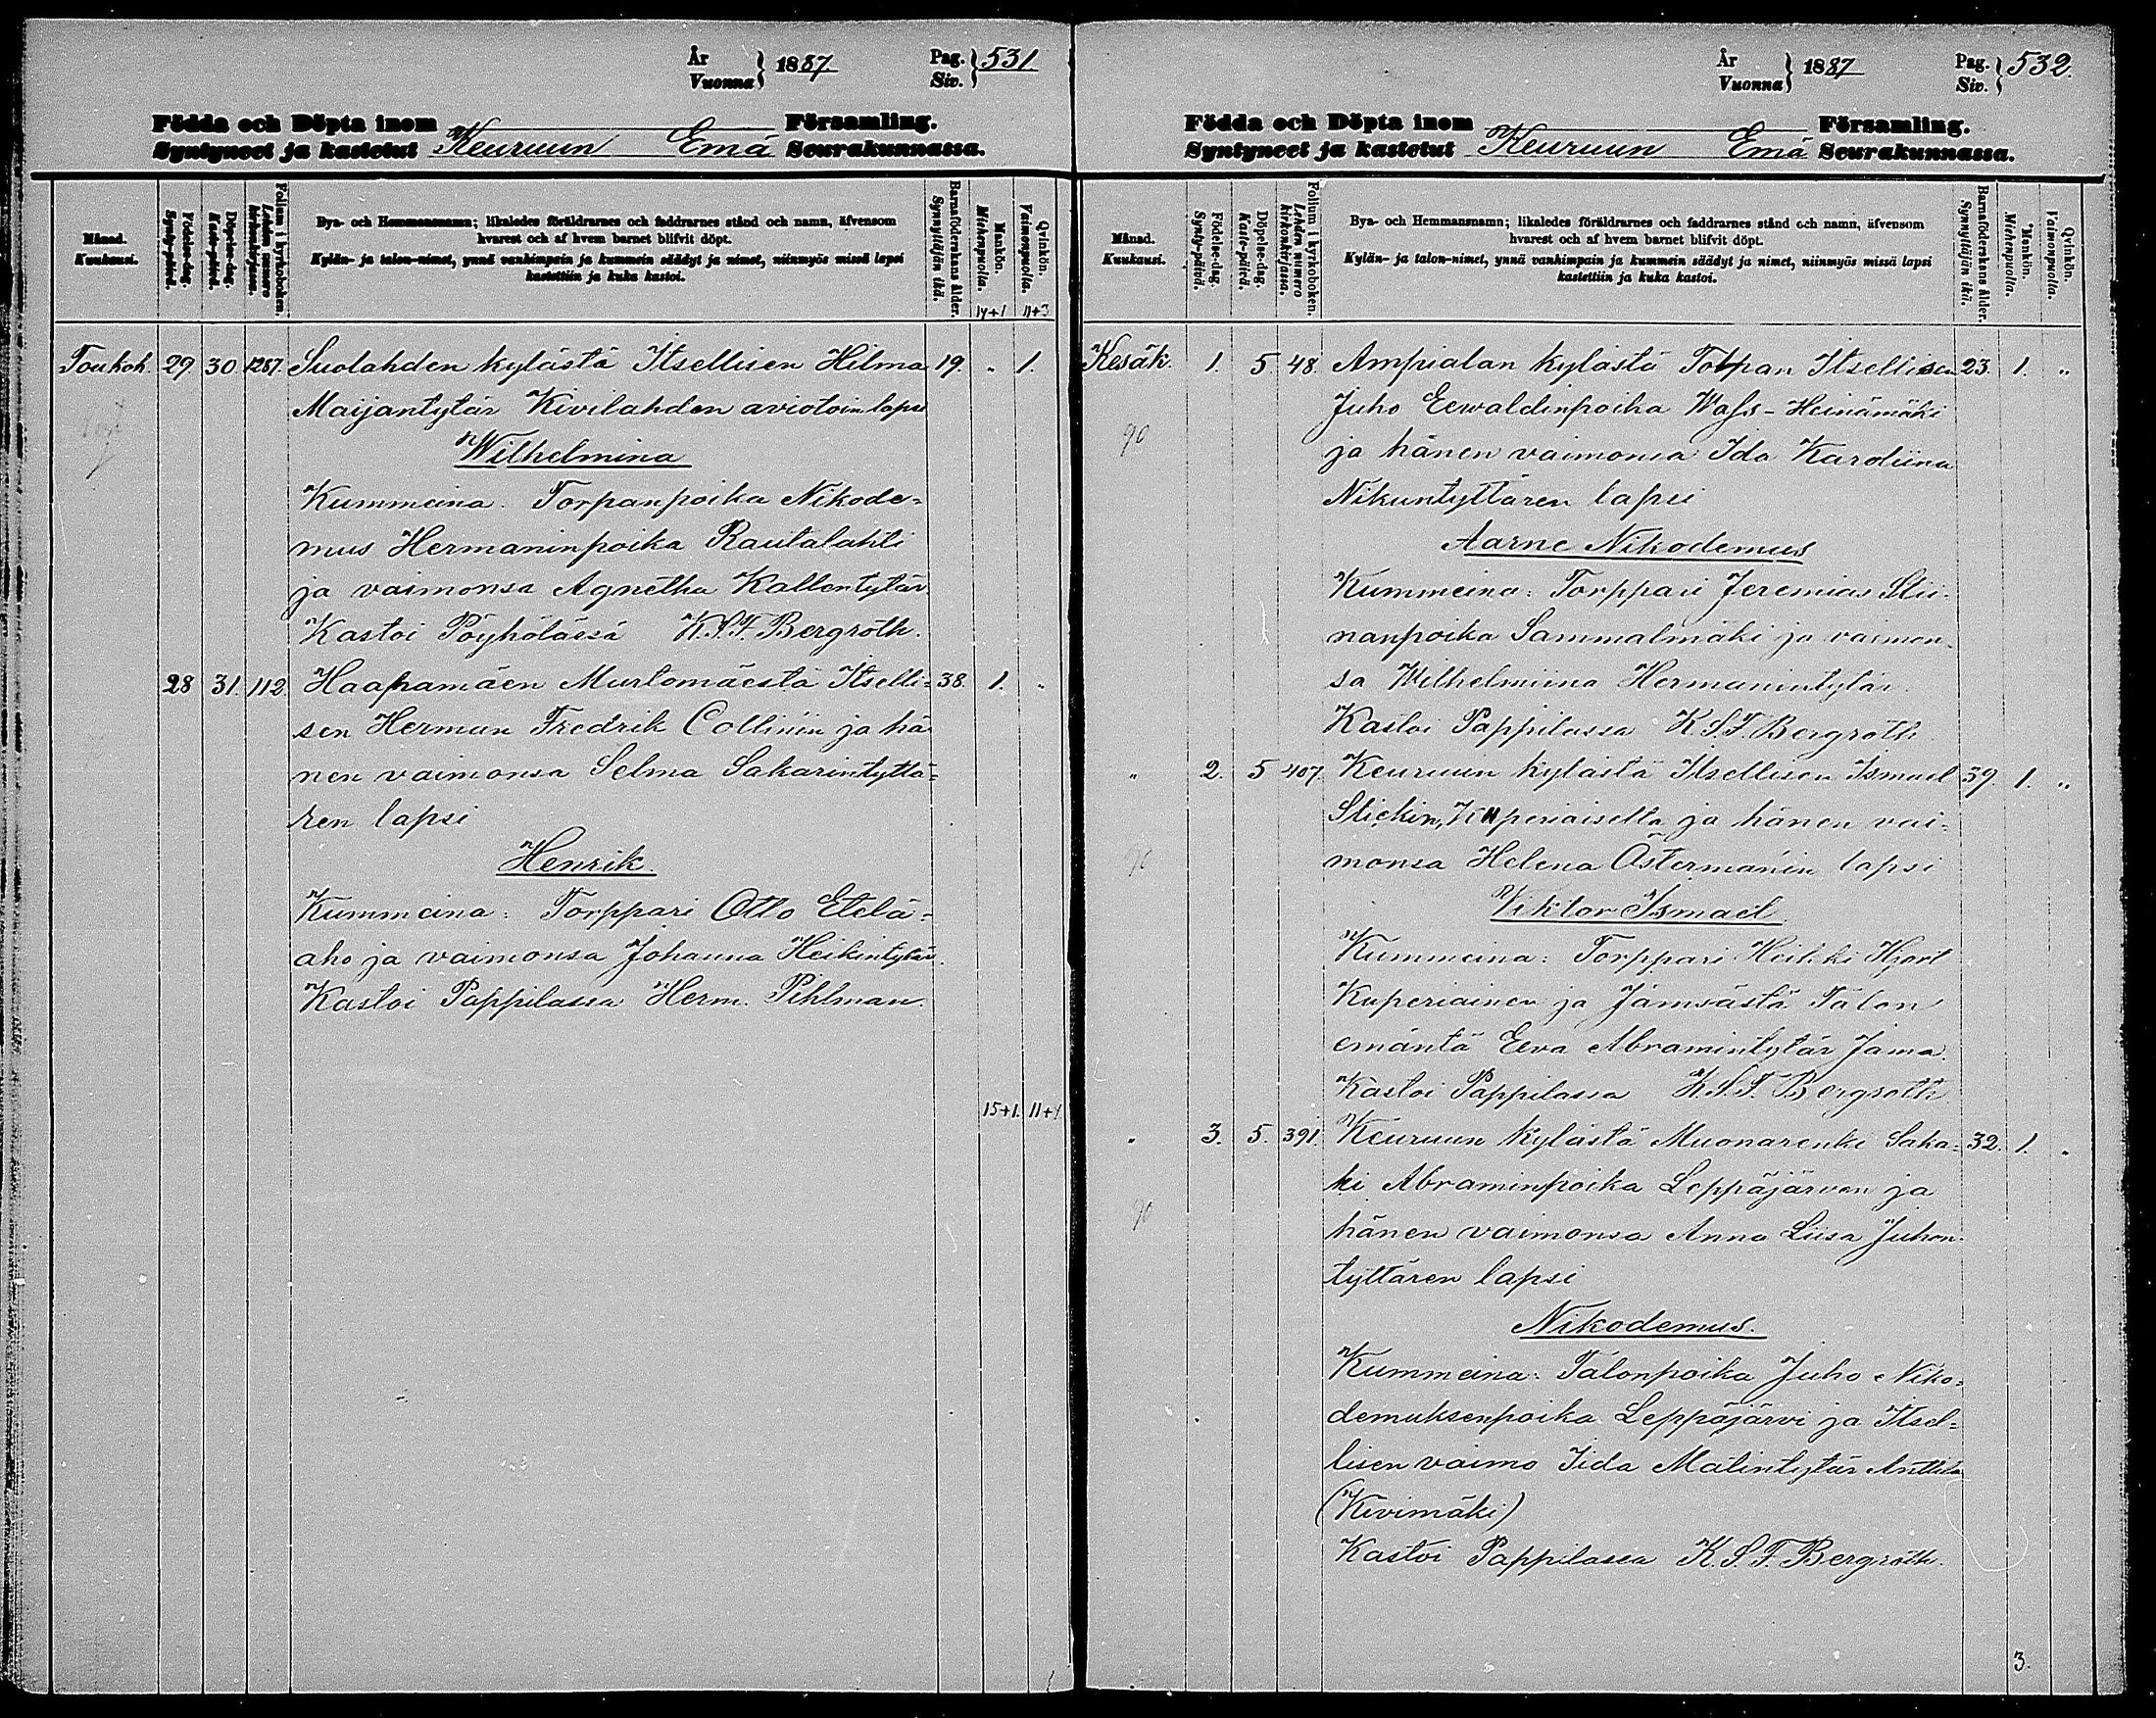 År
Vuonna } 1887. Pag.
Siv. } 531
Födda och Döpta inom Församling.
Syntyneet ja kastetut Keuruun Emä Seurakunnassa.
Månad.
Kuukausi.
Födelse-dag.
Synty-päivä.
Döpelse-dag.
Kaste-päivä.
Folium i kyrkoboken.
Lehden numero
kirkonkirjassa.
Bya- och Hemmansnamn; likaledes föräldrarnes och faddrarnes stånd och namn, äfvensom
hvarest och af hvem barnet blifvit döpt.
Kylän- ja talon-nimet, ynnä vanhimpain ja kummein säädyt ja nimet, niinmyös missä lapsi
kastettiin ja kuka kastoi.
Barnaföderskans ålder.
Synnyttäjän ikä.
Mankön.
Miehenpuolia.
Qvinkön.
Vaimonpuolia.
14+1 11+3
Toukok. 29 30 1287. Suolahden kylästä Itsellisen Hilma 19. " 1.
Maijantytär Kivilahden aviotoin lapsi
Wilhelmina
Kummeina. Torpanpoika Nikode=
mus Hermaninpoika Rautalahti
ja vaimonsa Agnetha Kallentytär
Kastoi Pöyhölässä K.S.F. Bergroth.
28 31. 112 Haapamäen Murtomäestä Itselli= 38. 1. "
sen Herman Fredrik Collinin ja hä
nen vaimonsa Selma Sakarintyttä=
ren lapsi
Henrik.
Kummeina: Torppari Otto Etelä=
aho ja vaimonsa Johanna Heikintytär.
Kastoi Pappilassa Herm. Pihlman.
15+1. 11+4
År
Vuonna } 1887 Pag.
Siv. } 532.
Födda och Döpta inom Församling.
Syntyneet ja kastetut Keuruun Emä Seurakunnassa.
Månad.
Kuukausi.
Födelse-dag.
Synty-päivä.
Döpelse-dag.
Kaste-päivä.
Folium i kyrkoboken.
Lehden numero
kirkonkirjassa.
Bya- och Hemmansnamn; likaledes föräldrarnes och faddrarnes stånd och namn, äfvensom
hvarest och af hvem barnet blifvit döpt.
Kylän- ja talon-nimet, ynnä vanhimpain ja kummein säädyt ja nimet, niinmyös missä lapsi
kastettiin ja kuka kastoi.
Barnaföderskans ålder.
Synnyttäjän ikä.
Mankön.
Miehenpuolia.
Qvinkön.
Vaimonpuolia.
Kesäk. 1. 5 48. Ampialan kylästä Itsellisen 23. 1. "
Juho Eewaldinpoika Wass-Heinämäki
90 ja hänen vaimonsa Ida Karoliina
Nikuntyttären lapsi
Aarne Nikodemus
Kummeina: Torppari Jeremias Stii=
nanpoika Sammalmäki ja vaimon
sa Wilhelmiina Hermanintytär.
Kastoi Pappilassa K.S.F. Bergroth
" 2. 5 407. Keuruun kylästä Itsellisen Ismael 39. 1. "
Stickin, Kuperiaisella ja hänen vai=
90 monsa Helena Östermanin lapsi
Viktor Ismael
Kummeina: Torppari Heikki Hjort
Kuperiainen ja Jämsästä Talon
emäntä Eeva Abramintytär Jama.
Kastoi Pappilassa K.S.F. Bergroth
" 3. 5. 391. Keuruun kylästä Muonarenki Saka= 32. 1. "
ki Abraminpoika Leppäjärven ja
90 hänen vaimonsa Anna Liisa Juhon
tyttären lapsi
Nikodemus.
Kummeina: Talonpoika Juho Niko=
demuksenpoika Leppäjärvi ja Itsel=
lisen vaimo Iida Matintytär Anttila
(Kivimäki)
Kastoi Pappilassa K.S.F. Bergroth.
3.